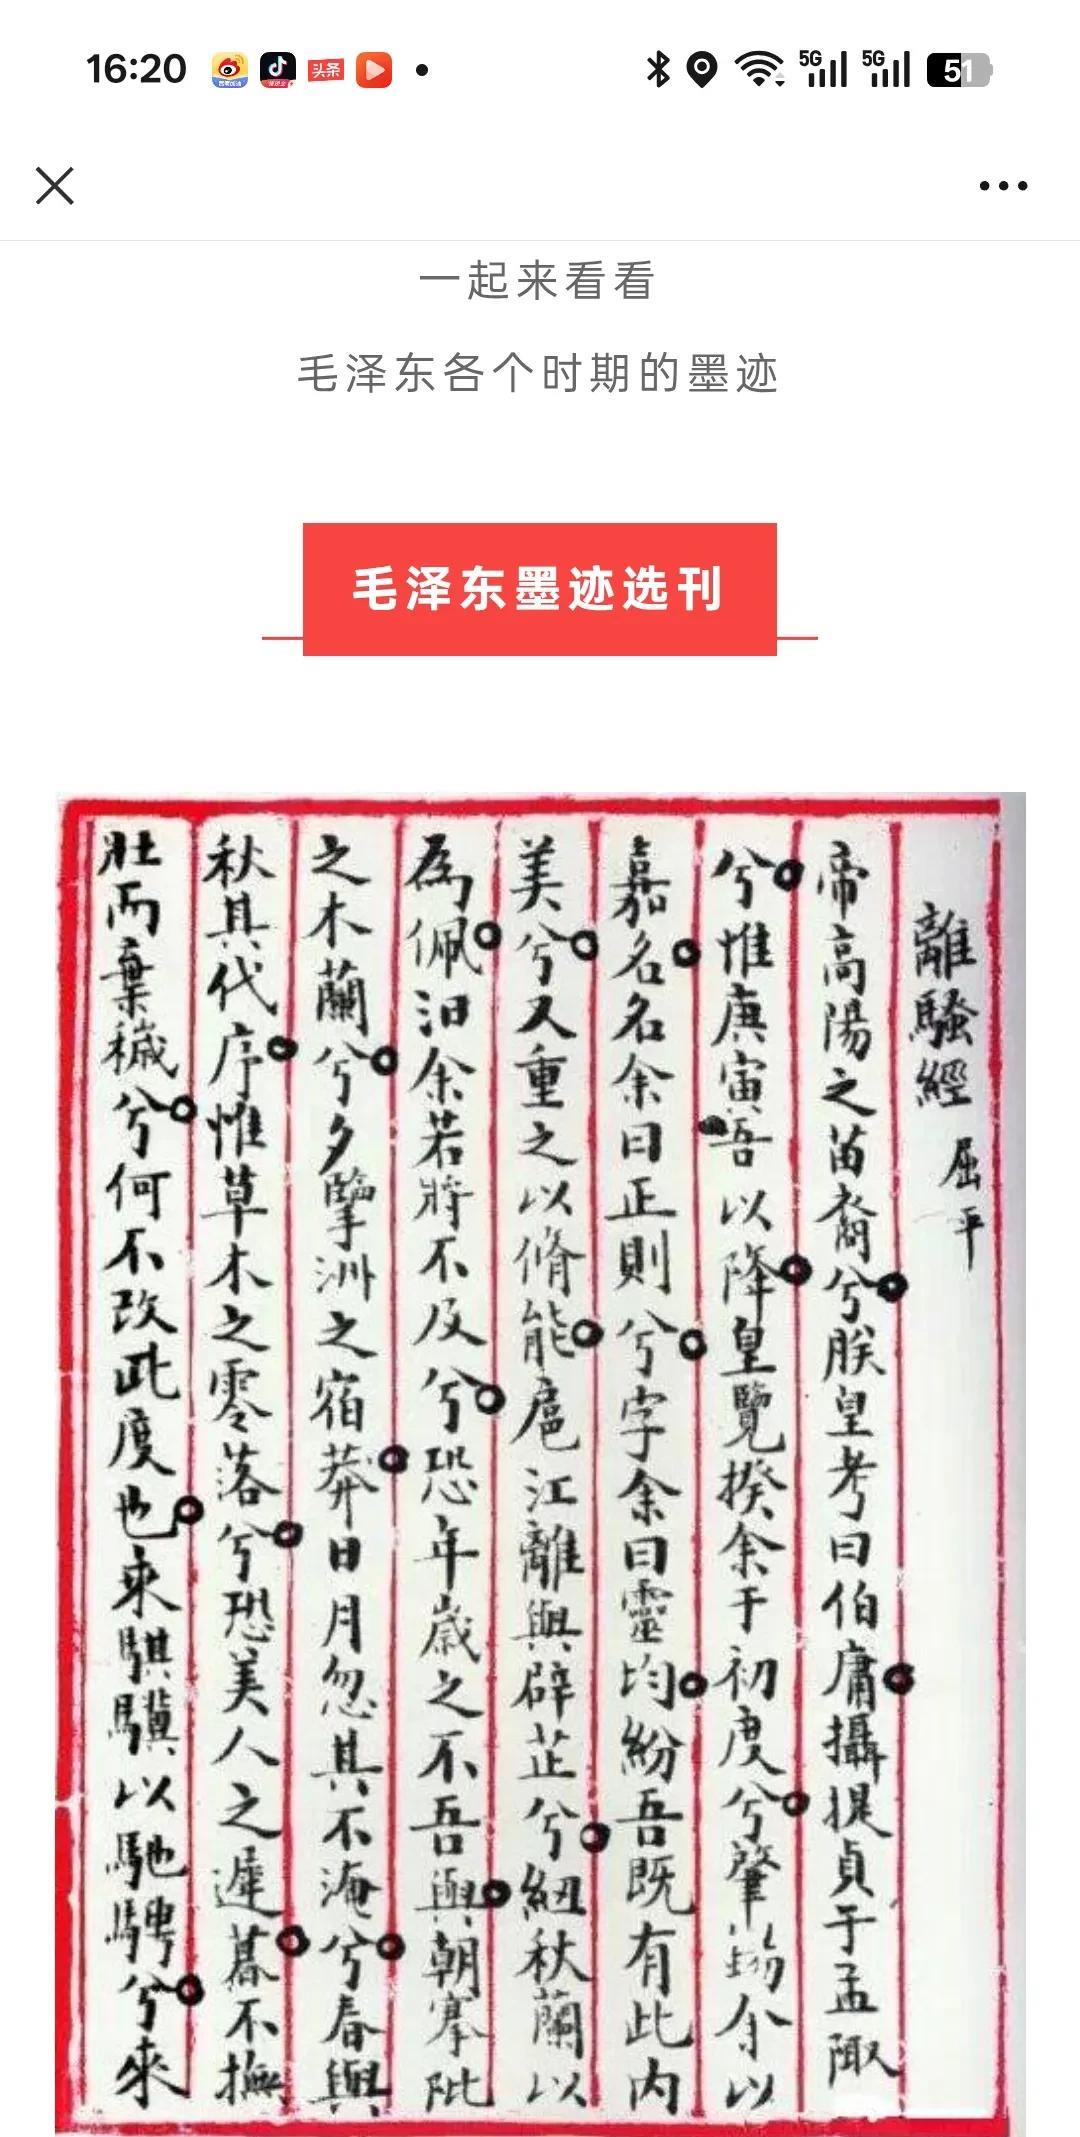 16:20
头条
5G
5G
51
一起来看看
毛泽东各个时期的墨迹
毛泽东墨迹选刊
離騷經 屈平
帝高陽之苗裔兮朕皇考曰伯庸攝提貞于孟陬
兮惟庚寅吾以降皇覽揆余于初度兮肇錫余以
嘉名名余曰正則兮字余曰靈均紛吾既有此内
美兮又重之以脩能扈江離與辟芷兮紐秋蘭以
為佩汨余若將不及兮恐年歲之不吾與朝搴阰
之木蘭兮夕擥洲之宿莽日月忽其不淹兮春與
秋其代序惟草木之零落兮恐美人之遲暮不撫
壯而棄穢兮何不改此度也乘騏驥以馳騁兮來